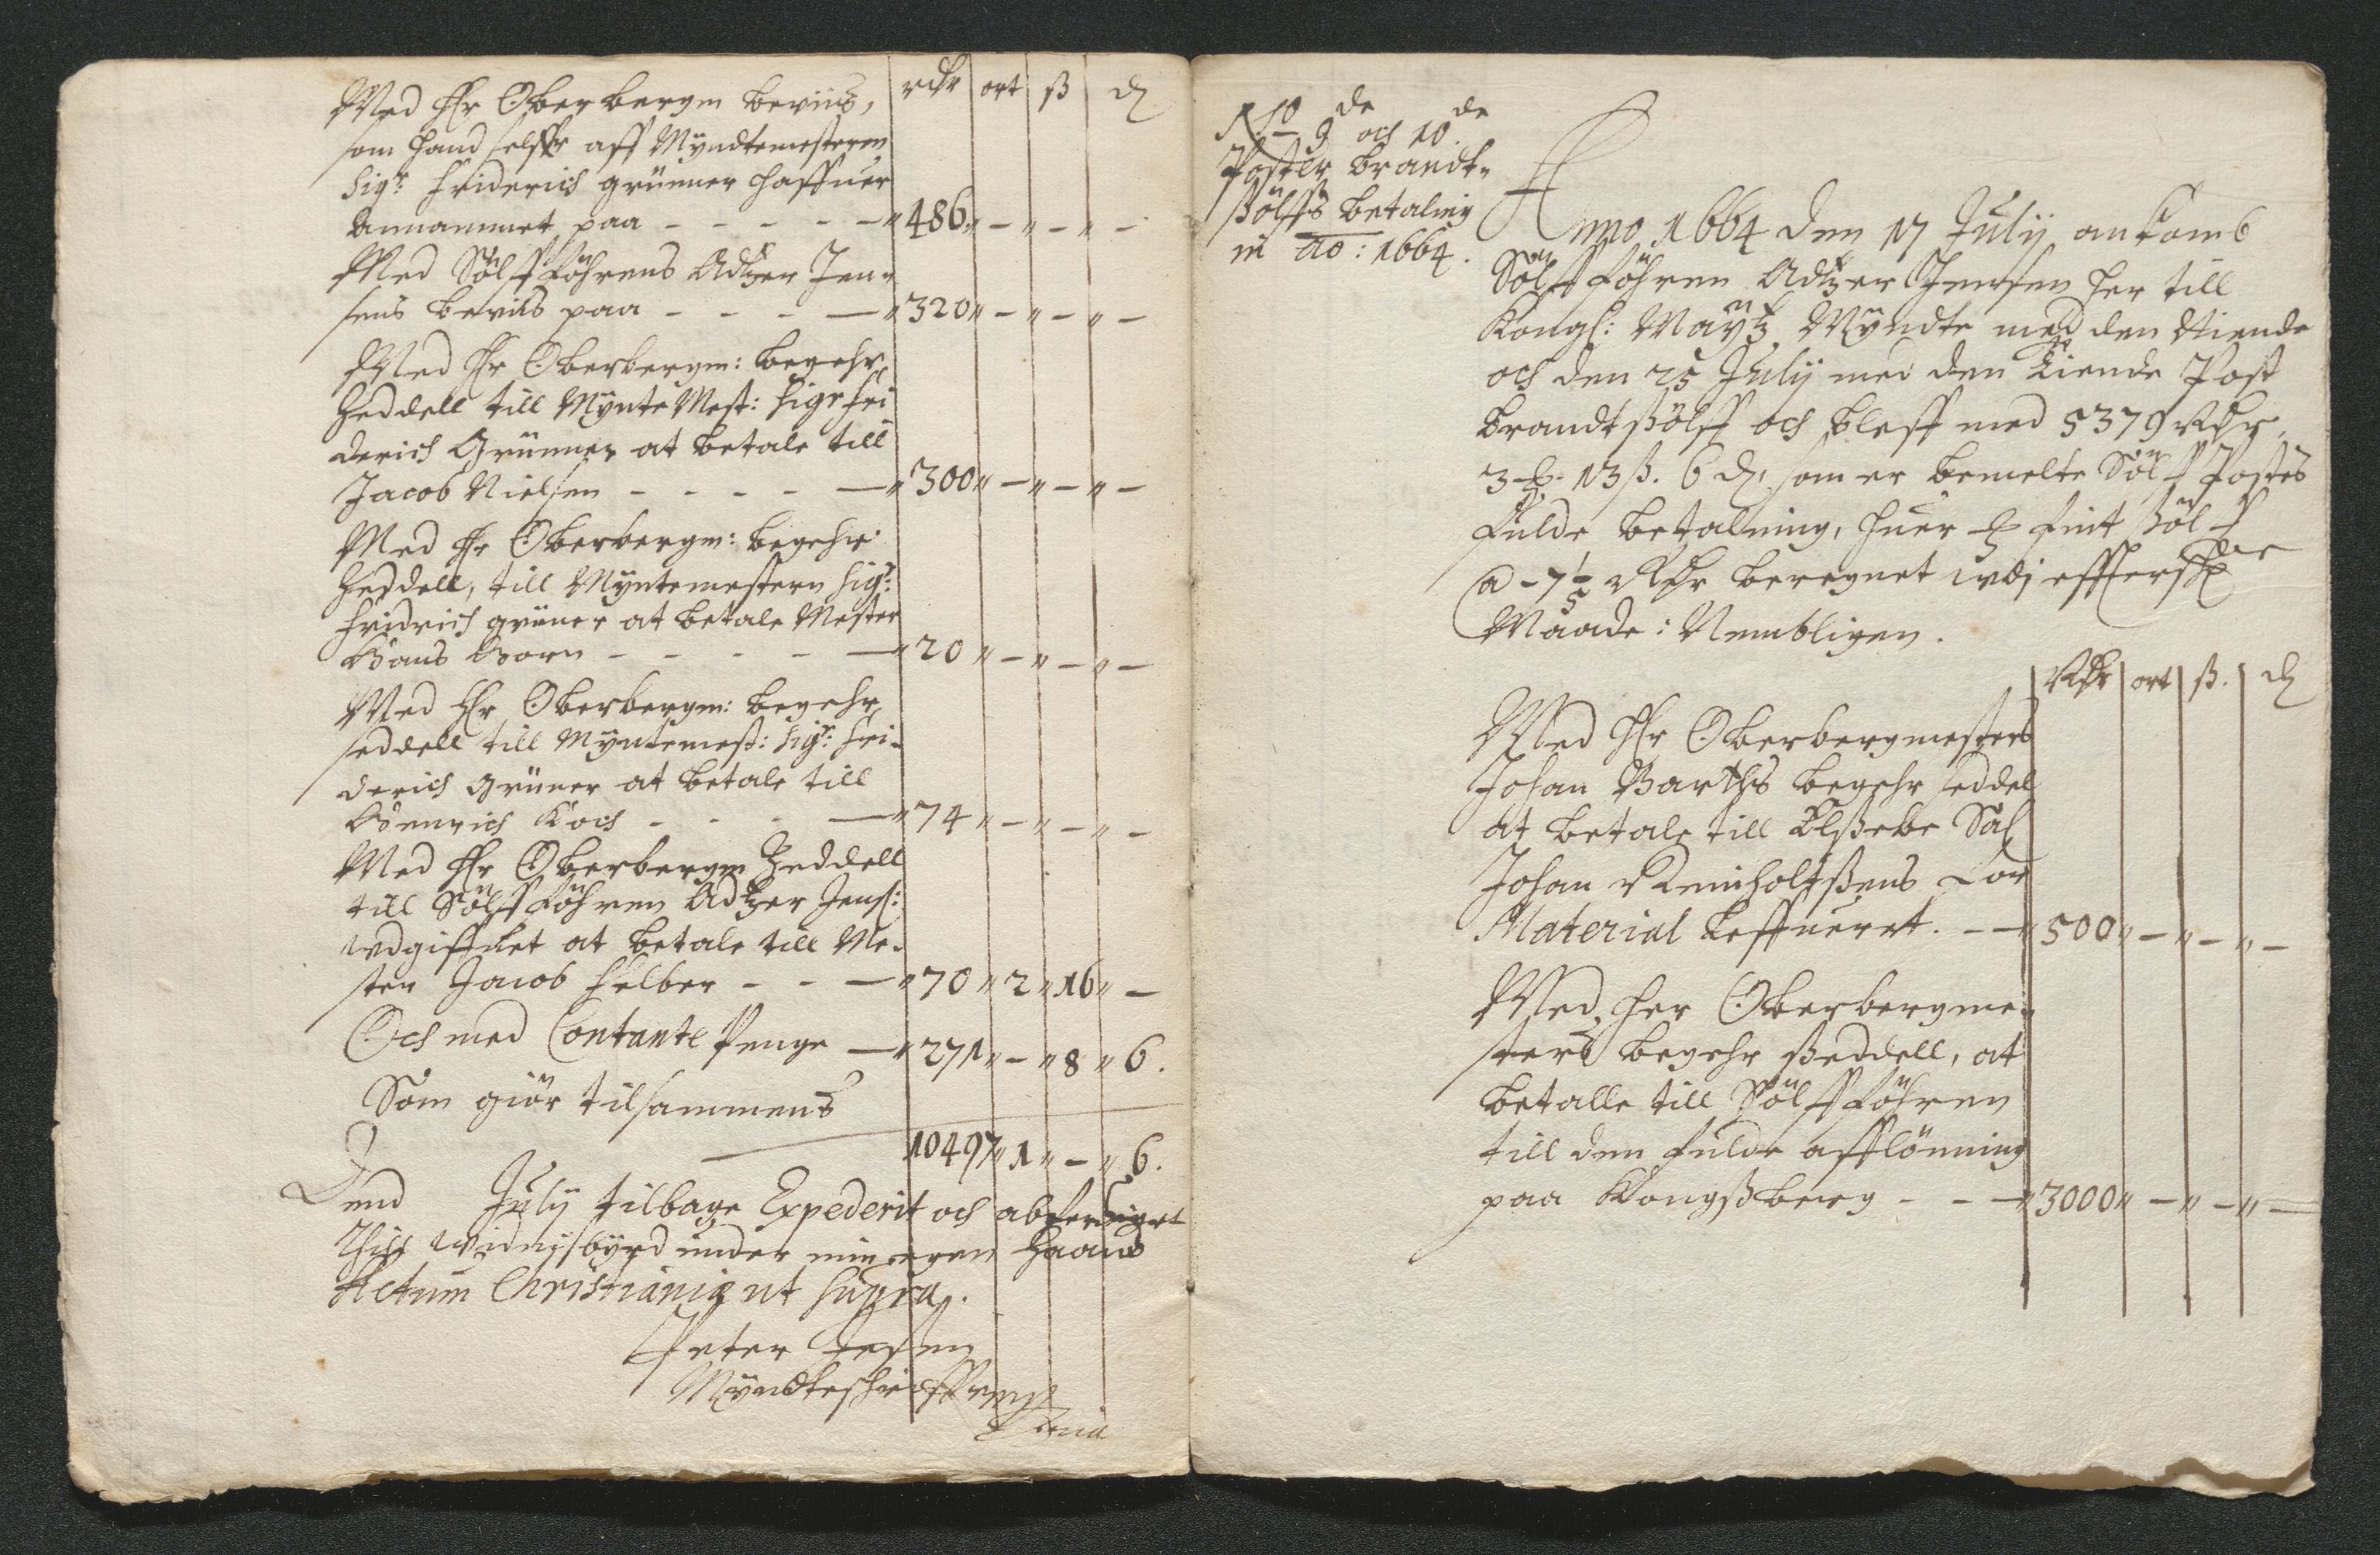 rdr ort ß d
Med Hr Oberbergm beviis,
som hand selffr aff Myndtemesteren
Sigr: Friderich grüuner haffuer
Annammet paa - - - - - " 486 " - " - " -
Med Sölffföhrens Adtzer Jen-
sens beviis paa - - - - " 320 " - " - " -
Med Hr Oberbergm: begehr
Zeddell till Mynte Mest: Sigr Fri
derich Grüuner at betale till
Jacob Nielsen - - - - - " 300 " - " - " -
Med Hr Oberbergm: begehr
Zeddell, till Myntemestern Sigr:
Fridrich grüner at betale Mester
Hans Born - - - - - " 20 " - " - " -
Med Hr Oberbergm: begehr
seddell till Myntemest: Sigr: Fri-
derich Grüner at betale till
Henrich Koch - - - - " 74 " - " - " -
Med Hr Oberbergm Zeddell
till Sölffföhren Adtzer Jens:
wdgiffuet at betale till Me-
ster Jacob Felber - - - " 70 " 2 " 16 " -
Och med Contante Penge - " 271 " - " 8 " 6.
Som giör tilsammens
10497 " 1 " - " 6.
Dend Julij tilbage Expederit och abferdiget
Thill widnisbyrd under min egen Haand
Actum Christianiæ ut supra.
Peter Jessen
Myndteschriffver
9de och 10de
Poster brandt-
sölffs betaling
in ao: 1664.
Anno 1664 den 17 Julij ankomb
Sölffföhren Adtzer Jensen her till
Kongl: Maytz Myndte med den Niende
och den 25 Julij med den Tiende Post
brandtsölff och bleff med 5379 Rdr,
3 ort 13 ß. 6 d, som er bemelte Sölff Postes
fulde betalning, huer fint sölff
a - 7 1/5 Rdr beregnet udj
Maade: Nembligen.
Rdr ort ß. d
Med Hr Oberbergmesters
Johan Barths begehr seddel
at betale till Elssebe Sal
Johan Reinholtssens for
Material Leffueret. - - " 500 " - " - " -
Med Her Oberbergme-
sters begehr sseddell, at
betalle till Sölffföhren
till den fulde afflönning
paa Kongssberg - - - " 3000 " - " - " -